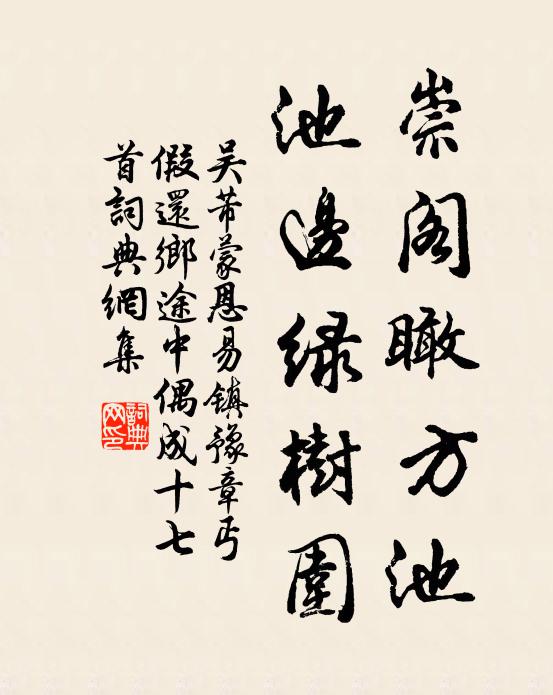 崇阁瞰方池
池邊绿樹圍
吴芾蒙恩易镇豫章丐
假還鄉途中偶成十七
首詞典網集
詞典
网印